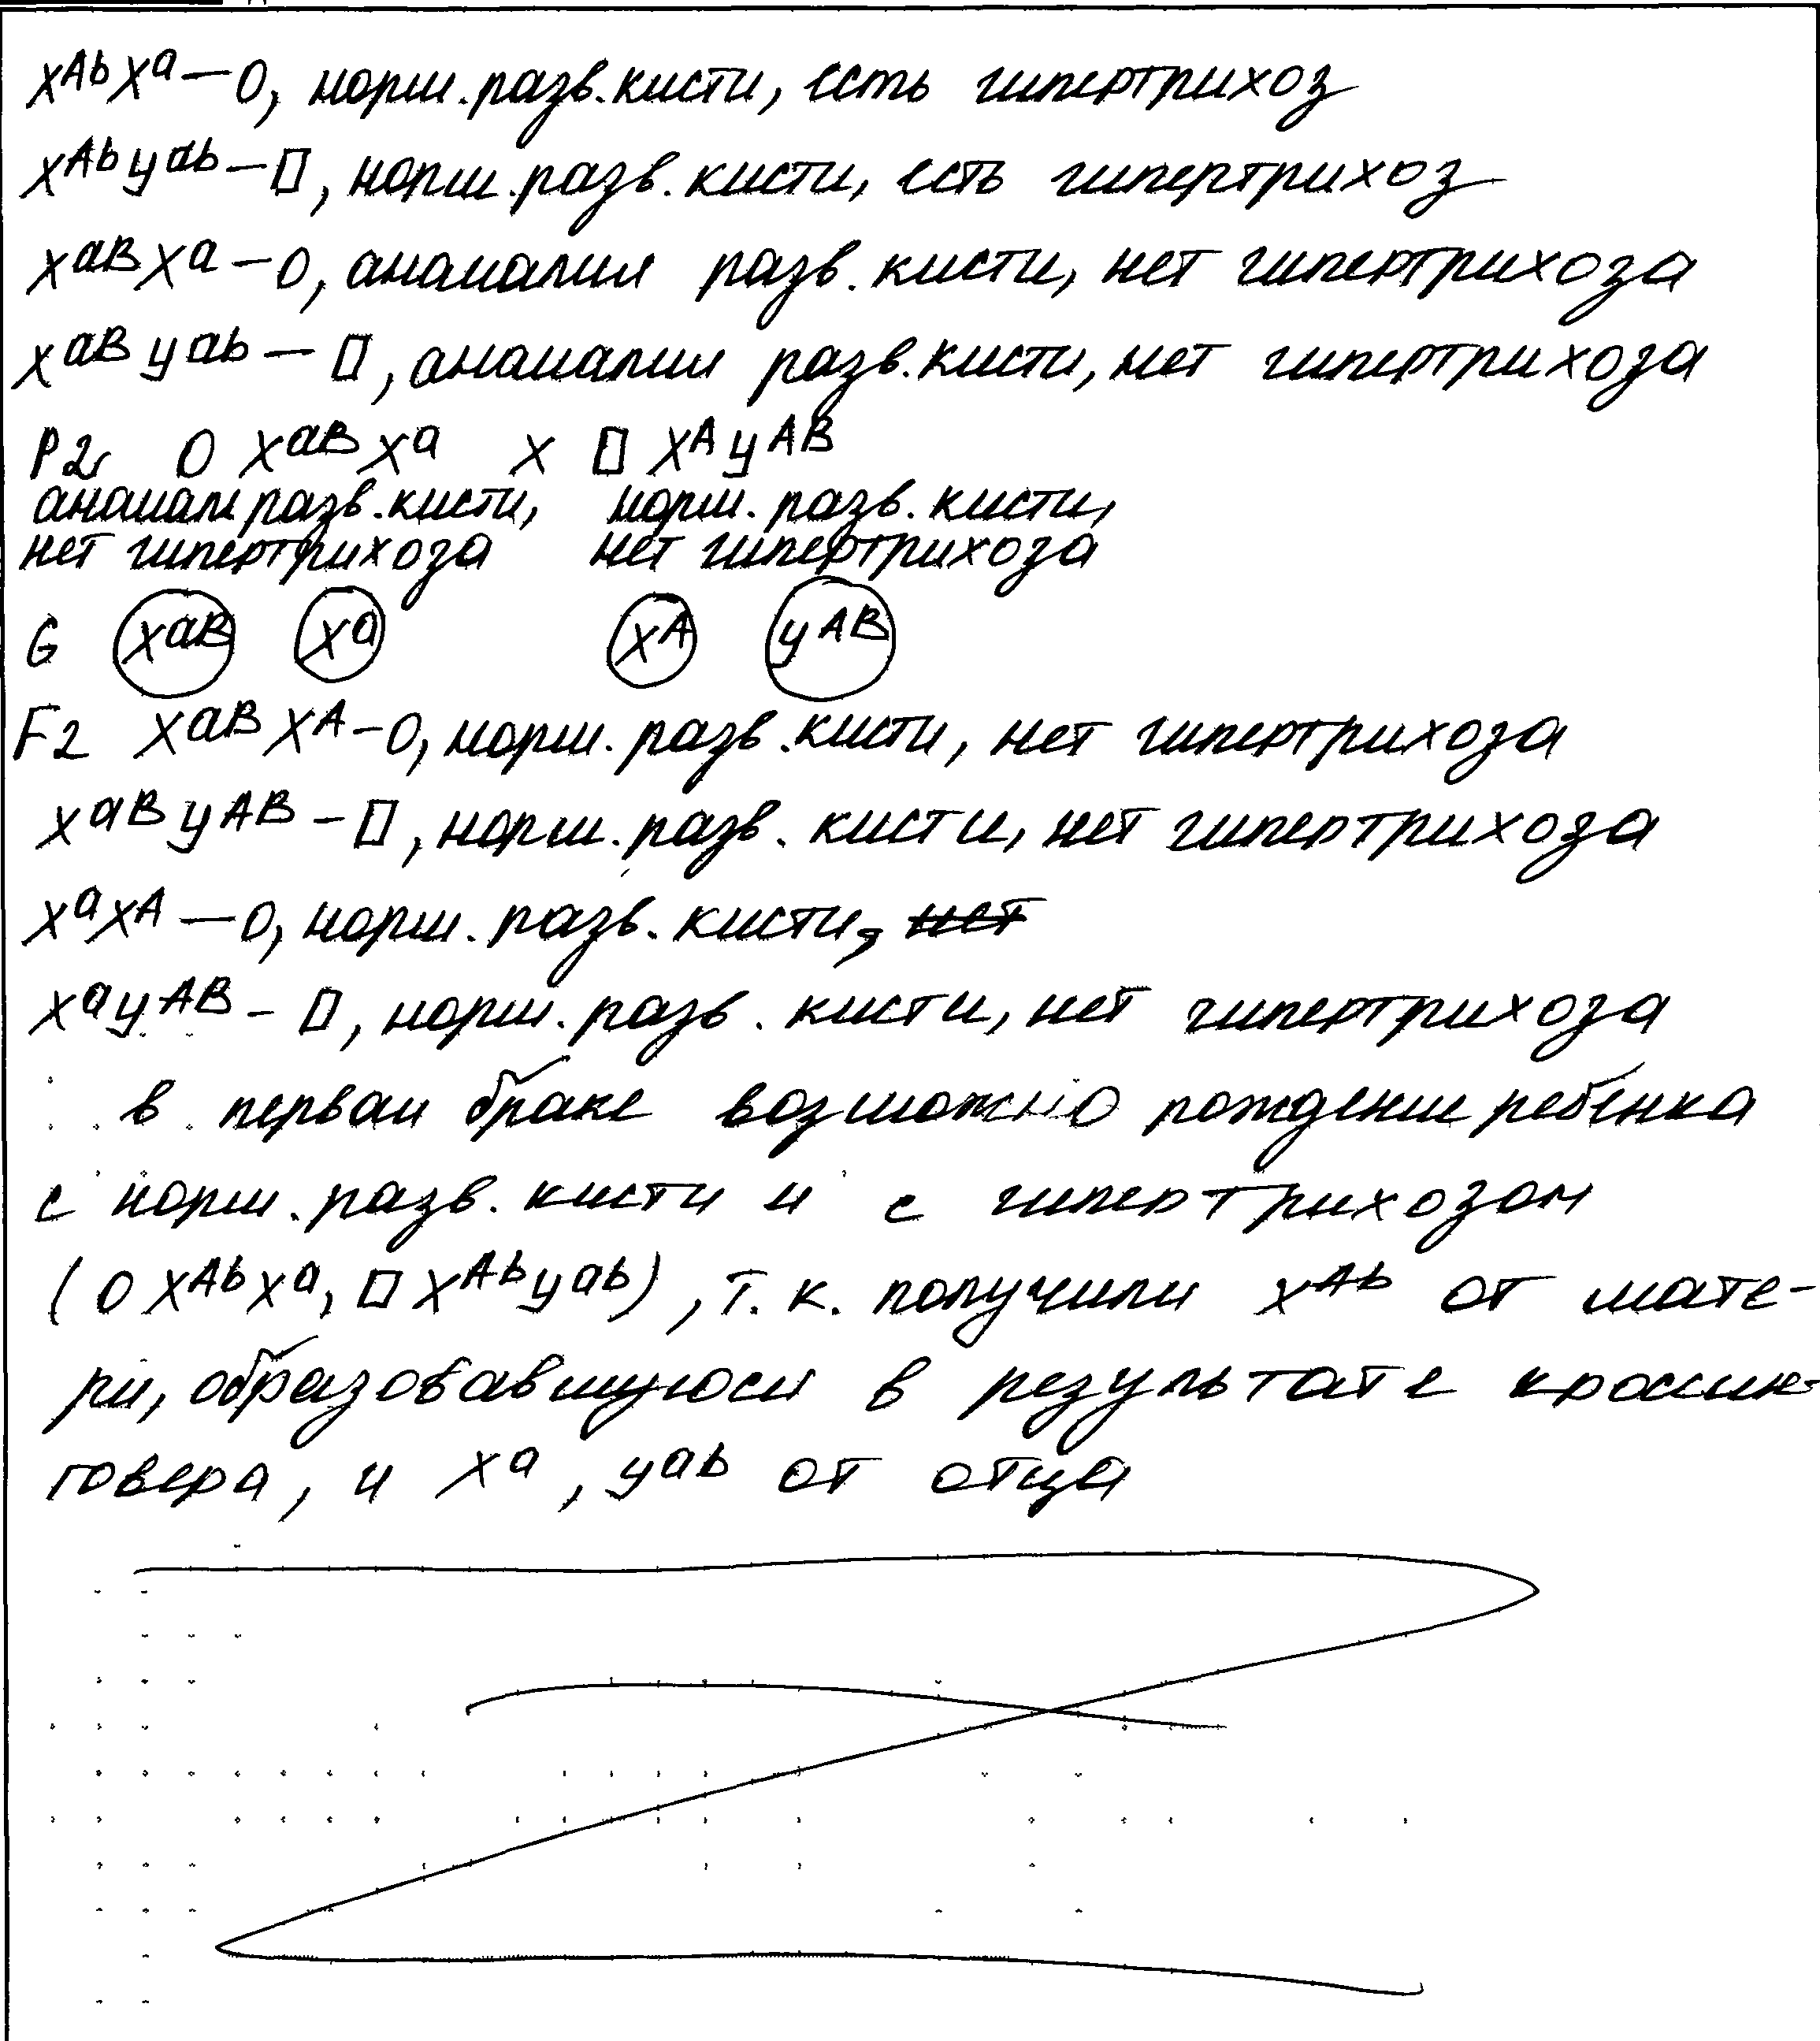 X^Ab X^a — O, норм. разв. кисти, есть гипертрихоз
X^Ab y^ab — □, норм. разв. кисти, есть гипертрихоз
X^aB X^a — O, аномалия разв. кисти, нет гипертрихоза
X^aB y^ab — □, аномалия разв. кисти, нет гипертрихоза
P2: O X^aB X^a x □ X^A y^AB
аномал разв. кисти, норм. разв. кисти,
нет гипертрихоза нет гипертрихоза
G X^aB X^a X^A y^AB
F2 X^aB X^A — O, норм. разв. кисти, нет гипертрихоза
X^aB y^AB — □, норм. разв. кисти, нет гипертрихоза
X^a X^A — O, норм. разв. кисти, нет
X^a y^AB — □, норм. разв. кисти, нет гипертрихоза
в первом браке возможно рождение ребёнка
с норм. разв. кисти и с гипертрихозом
(O X^Ab X^a, □ X^Ab y^ab), т. к. получили X^Ab от мате-
ри, образовавшуюся в результате кроссин-
говера, и X^a, y^ab от отца